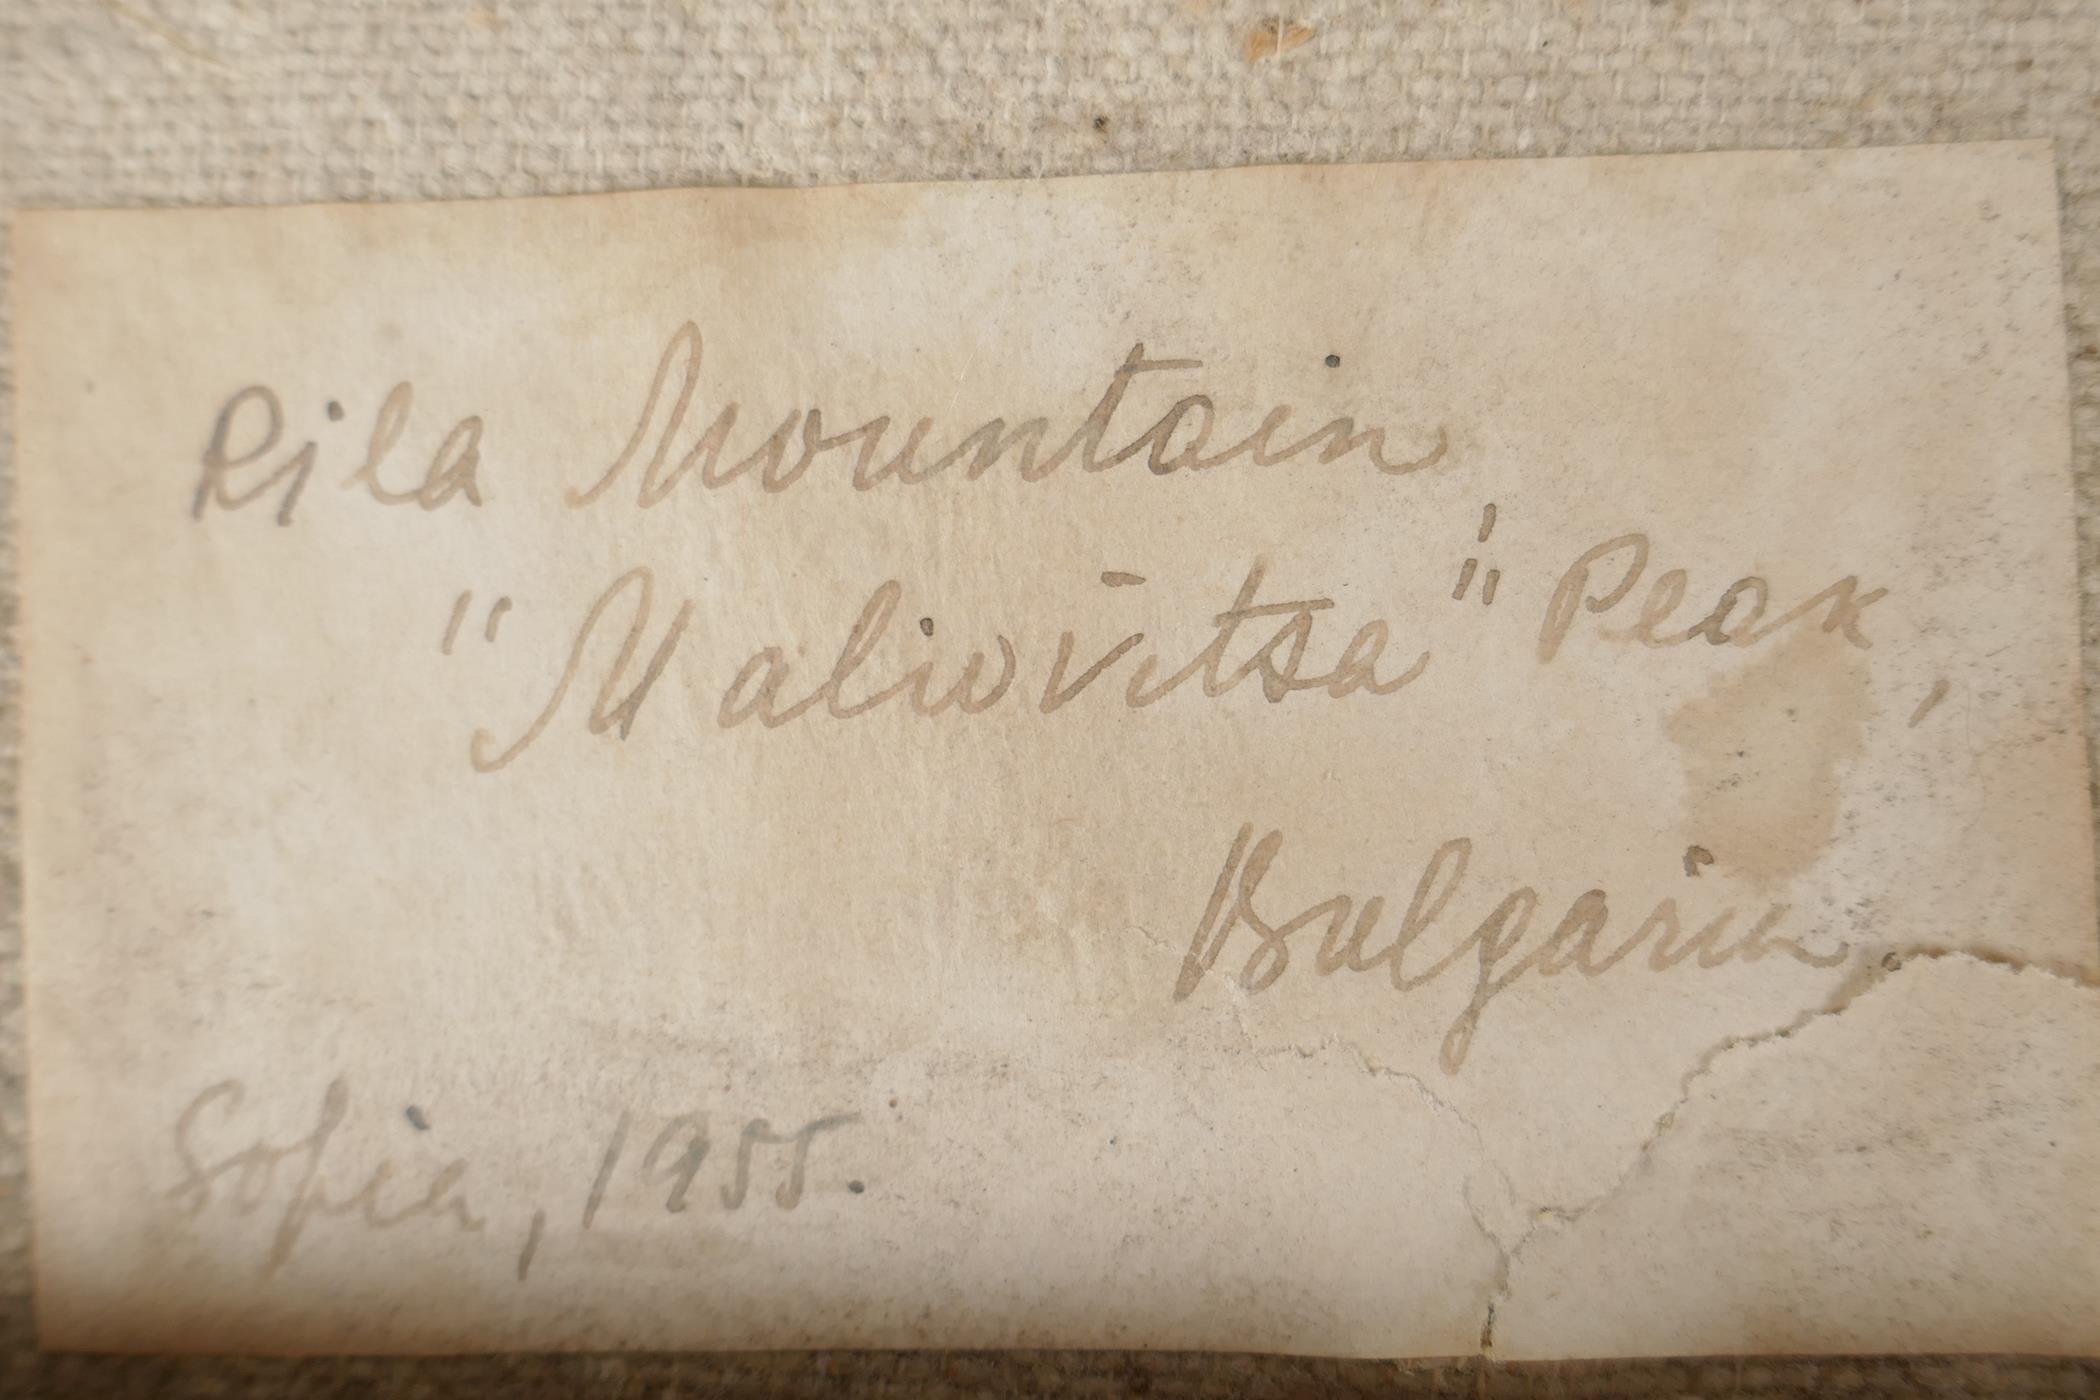 Rila Mountain
"Maliovitsa" Peak,
Bulgaria.
Sofia, 1955.